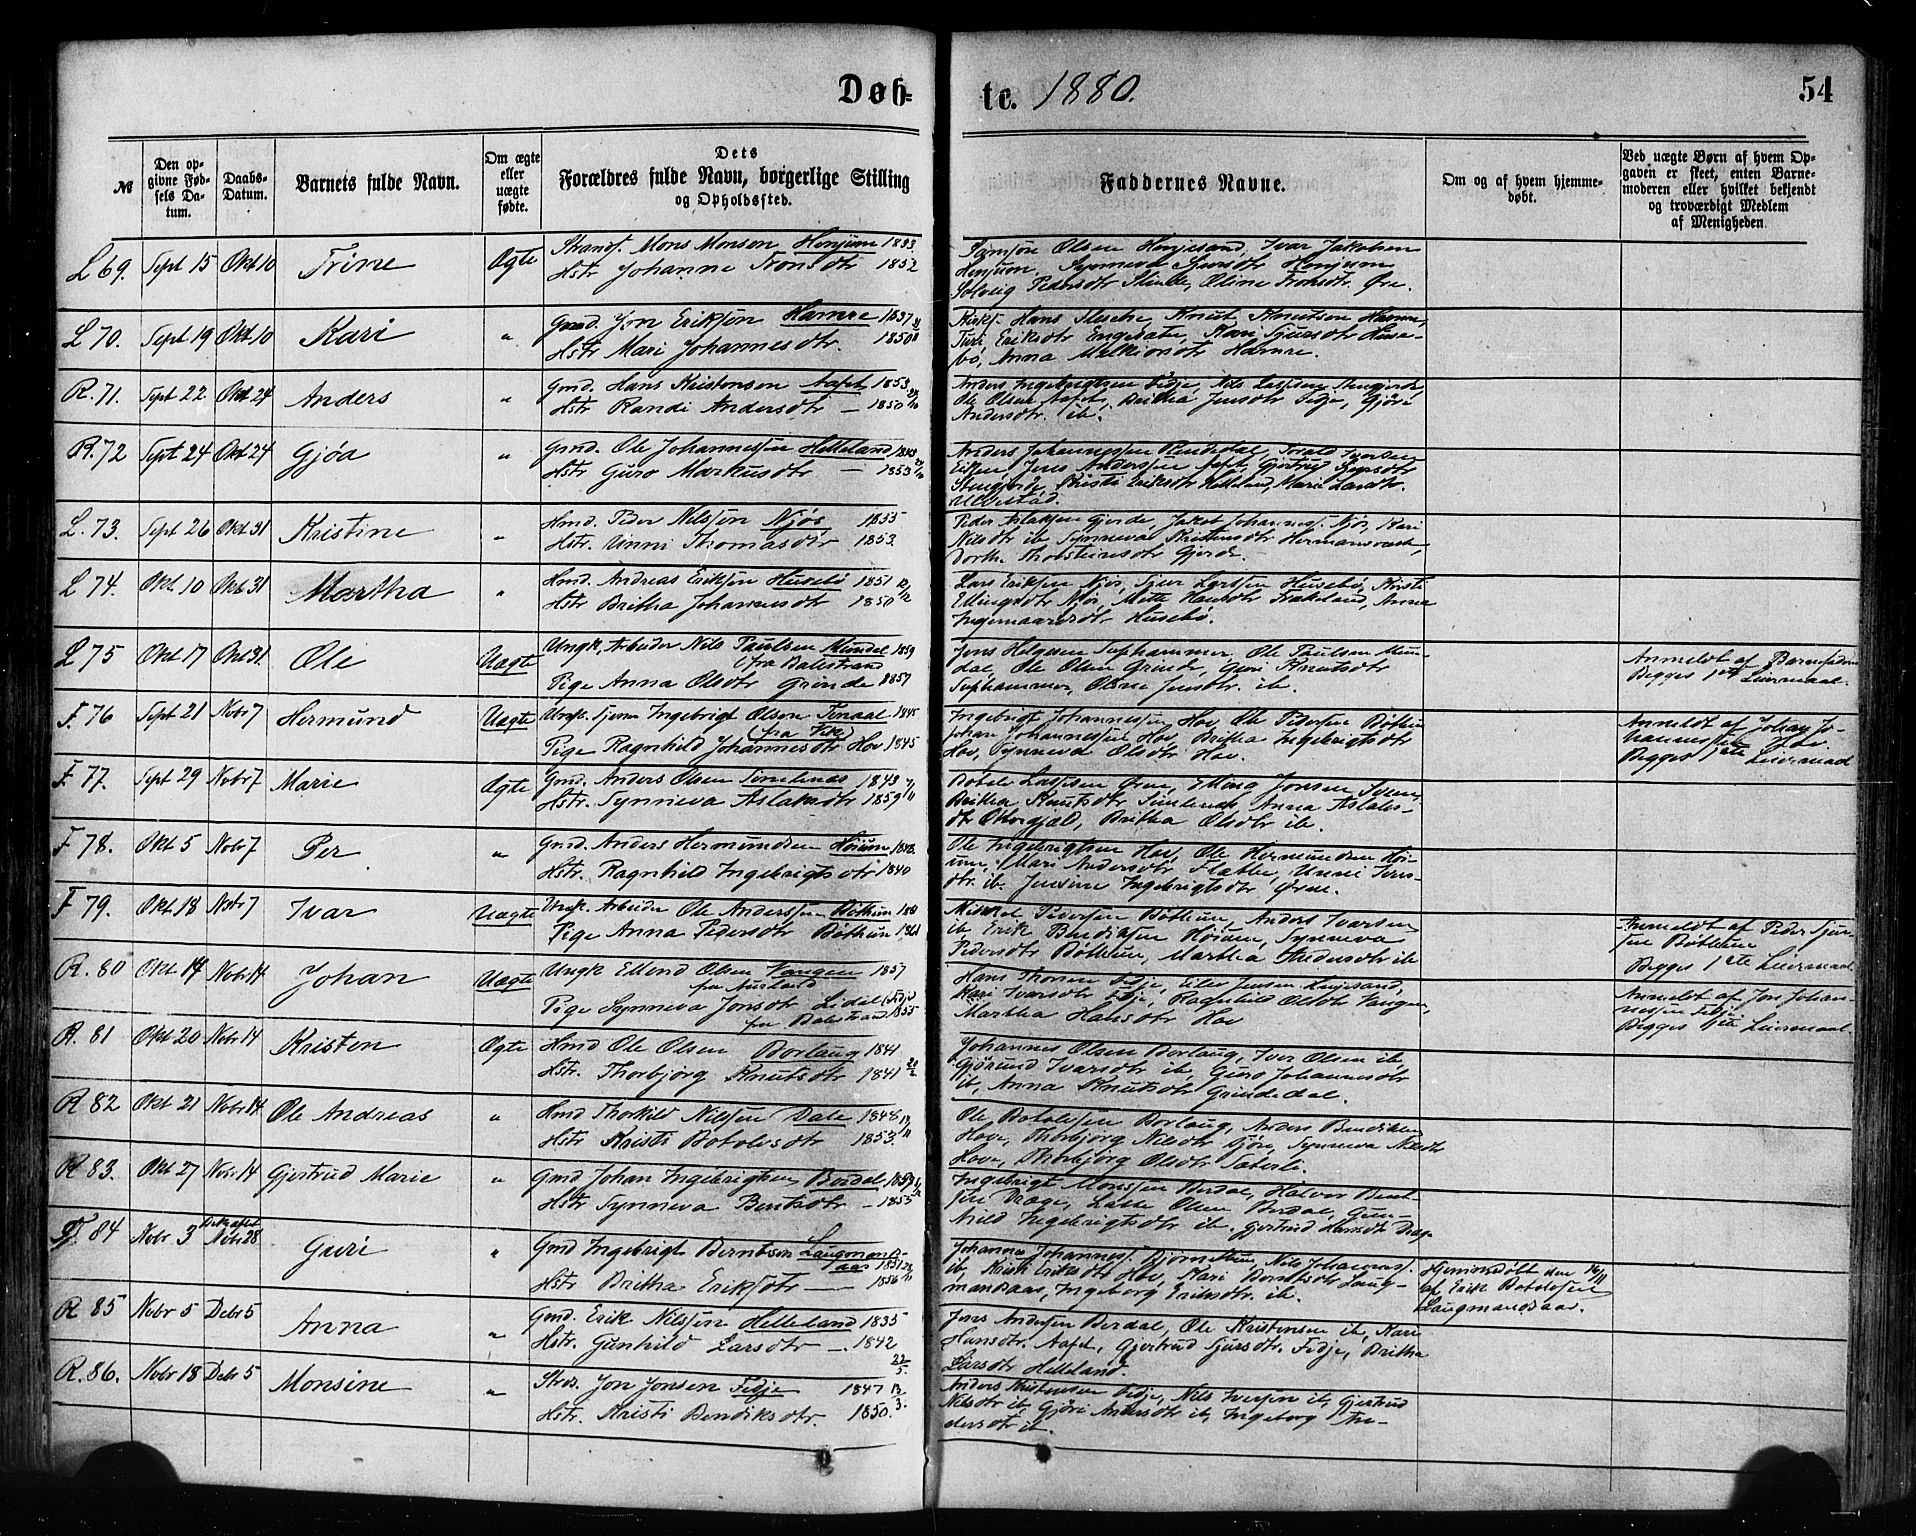 Døb-
te. 1880.
54
№
Den op-
givne Fød-
sels Da-
tum.
Daabs-
Datum.
Barnets fulde Navn.
Om ægte
eller
uægte
fødte.
Dets
Forældres fulde Navn, borgerlige Stilling
og Opholdssted.
Faddernes Navne.
Om og af hvem hjemme-
døbt.
Ved uægte Børn af hvem Op-
gaven er skeet, enten Barne-
moderen eller hvilket bekjendt
og troværdigt Medlem
af Menigheden.
L 69. Sept 15 Okt 10 Trine Ægte Strands. Mons Monsen Henjum 1833
Hstr Johanne Tronsdtr 1852
Samson Olsen Henjesand, Ivar Jakobsen
Henjum, Synneva Sjursdtr Henjum
Solveig Pedersdtr Slinde, Oline Tronsdtr. Øre.
L 70. Sept 19 Okt 10 Kari " Gmd. Jon Eriksen Hamre 1837
Hstr Mari Johannesdtr. 1850
Hans Knut Knutsen Hamre,
Turi Eriksdtr Engesæte, Kari Sjursdtr Huse-
bø, Anna Melkiordtr Hamre.
R. 71. Sept 22 Okt 24 Anders " Gmd. Hans Kristensen Aafet 1853
Hstr Randi Andersdtr — 1850
Anders Ingebrigtsen Fedje, Nils Lassesen Stengjerde,
Ole Olsen Aafet, Britha Jensdtr Fedje, Gjøri
Andersdtr. ib.
R. 72 Sept 24 Okt 24 Gjøa " Gmd. Ole Johannessen Helleland
Hstr Guro Markusdtr — 1853
Anders Johannessen Rendedal, Torald Iversen
Eiken, Jens Anderssen Aafet, Gjertrud
Stengjerde, Kristi Eriksdtr Helleland, Marie Larsdtr.
Ulvestad.
L. 73. Sept 26 Okt 31 Kristine " Hmd. Peder Nilssen Njøs 1855
Hstr. Unni Thomasdtr 1853.
Peder Aslaksen Gjerde, Jakob Johannes. Njøs, Kari
Nilsdtr ib Synneva Kristensdtr Hermansverk,
Dorth. Thorsteinsdtr Gjerde.
L 74. Okt 10 Okt 31 Martha " Hmd. Andreas Eriksen Husebø 1851
Hstr Britha Johannesdtr 1850
Lars Eriksen Njøs, Sjur Larssen Husebø, Kirsti
Ellingsdtr Njøs, Mette Hansdtr Frækeland, Anna
Ingemarsdtr Husebø.
L 75 Okt 17 Okt 31. Ole Uægte Ungk, Arbeider Nils Paulsen Mundal 1859
(fra Balestrand
Pige Anna Olsdtr Grinde 1857
Jens Helgesen Suphammer, Ole Paulsen Mun-
dal, Ole Olsen Grinde, Guri Knutsdtr
Suphammer, Oline Jensdtr ib.
Anmeldt af Barnefaderen
Begges 1ste Leiermaal.
F. 76 Sept 21 Nobr 7 Hermund Uægte Ungk. Tjener Ingebrigt Olsen 1845
Pige Ragnhild Johannesdtr Hov 1845
Ingebrigt Johannessen Hov, Ole Pedersen Bøthun
Johan Johannessen Hov, Britha Ingebrigtsdtr
Hov, Synneva Olsdtr Hov.
Anmeldt af Johan Jo-
hannessen Hov
Begges 1ste Leiermaal
F 77. Sept 29 Nobr 7 Marie Ægte Gmd. Anders Olsen 1843
Hstr. Synneva Aslaksdtr 1859
Botolv Lassesen Øren, Elling Jonsen
Britha Knutsdtr Anna Aslaks-
dtr Britha Olsdtr ib.
F 78. Okt 5 Nobr 7 Per " Gmd. Anders Hermundsen Høium
Hstr. Ragnhild Ingebrigtsdtr 1840
Ole Ingebrigtsen Hov, Ole Hermundsen Høi-
um, Mari Andersdtr Unni Ivers-
dtr. ib. Jensine Ingebrigtsdtr Øren.
F 79. Okt 18 Nobr 7 Ivar Uægte Ungk. Arbeider Ole Anderssen Bøthun
Pige Anna Pedersdtr Bøthun
Mikkel Pedersen Bøthun, Anders Ivarsen
ib Erik Bendiksen Høium, Synneva
Pedersdtr Bøthun, Martha Andersdtr ib
Anmeldt af Peder Sjur-
sen Bøthun
Begges 1ste Leiermaal
R. 80 Okt 14 Nobr 14 Johan Uægte Ungk Ellend Olsen Vangen 1857
fra Aurland
Pige Synneva Jonsdtr Lidal (Fedje
fra Balestrand 1855
Hans Thorsen Fedje, Eilev Jensen Henjesand,
Kari Ivarsdtr Fedje, Ragnhild Olsdtr Vangen,
Martha Hansdtr Hov
Anmeldt af Jon Johan-
nessen Fedje
Begges 1ste Leiermaal.
R. 81 Okt 20 Nobr 14 Kristen Ægte Hmd Ole Olsen Borlaug 1841
Hstr. Thorbjørg Knutsdtr 1841
Johannes Olsen Borlaug, Iver Olsen ib
Gjørund Ivarsdtr ib, Guro Johannesdtr
ib, Anna Knutsdtr Grindedal.
R 82 Okt 21 Nobr 14 Ole Andreas " Hmd Thorkild Nilssen Dale 1848
Hstr Kristi Botolvsdtr 1853.
Ole Botolvsen Borlaug, Anders Bendiksen
Hove, Thorbjørg Nilsdtr Synneva Nilsdtr
Hove, Thorbjørg Olsdtr Sæterli.
R 83. Okt 27 Nobr 14 Gjertrud Marie " Gmd Johan Ingebrigtsen Berdal
Hstr Synneva Bentsdtr — 1855
Ingebrigt Monssen Berdal, Halvor Bent-
sen Dræge, Lasse Olsen Berdal, Gun-
nild Ingebrigtsdtr ib. Gjertrud Hansdtr Dræge
F 84 Nobr 3 Nobr 28 Guri " Gmd Ingebrigt Berntsen Laugmands-
aas 1851
Hstr Britha Eriksdtr — 1856
Johannes Johannes. Bjørnetun, Nils Johannes.
ib, Kristi Eriksdtr Hov, Kari Berntsdtr Laug-
mandsaas, Ingeborg Eriksdtr. ib.
Hjemmedøbt den 14/11
af Erik Botolvsen
Laugmandsaas.
R 85 Nobr 5 Debr 5 Anna " Gmd. Erik Nilssen Helleland 1835
Hstr. Gunhild Larsdtr —. 1842
Jens Andersen Berdal, Ole Kristensen ib, Kari
Hansdtr. Aafet, Gjertrud Sjursdtr. Fedje, Britha
Larsdtr Helleland.
R. 86. Nobr 18 Debr 5 Monsine " Strds. Jon Jonsen Fedje 1847
Hstr. Kristi Bendiksdtr. 1850.
Anders Kristensen Fedje, Nils Iversen ib, Gjertrud
Nilsdtr ib, Gjøri Andersdtr ib, Ingeborg An-
dersdtr ib.